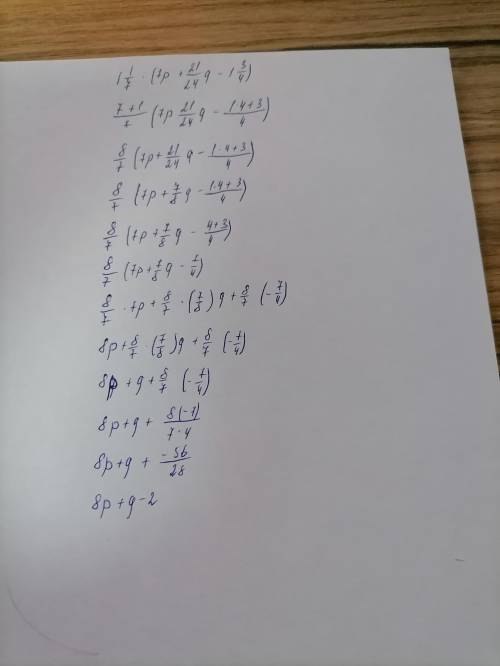 1 1/7 · (7p + 21/24 q - 1 3/4)
7+1/7 (7p 21/24 q - 1·4+3/4)
8/7 (7p + 21/24 q - 1·4+3/4)
8/7 (7p + 7/8 q - 1·4+3/4)
8/7 (7p + 7/8 q - 4+3/4)
8/7 (7p + 7/8 q - 7/4)
8/7 · 7p + 8/7 · (7/8) q + 8/7 (-7/4)
8p + 8/7 · (7/8) q + 8/7 (-7/4)
8p + q + 8/7 (-7/4)
8p + q + 8(-7)/7·4
8p + q + -56/28
8p + q - 2